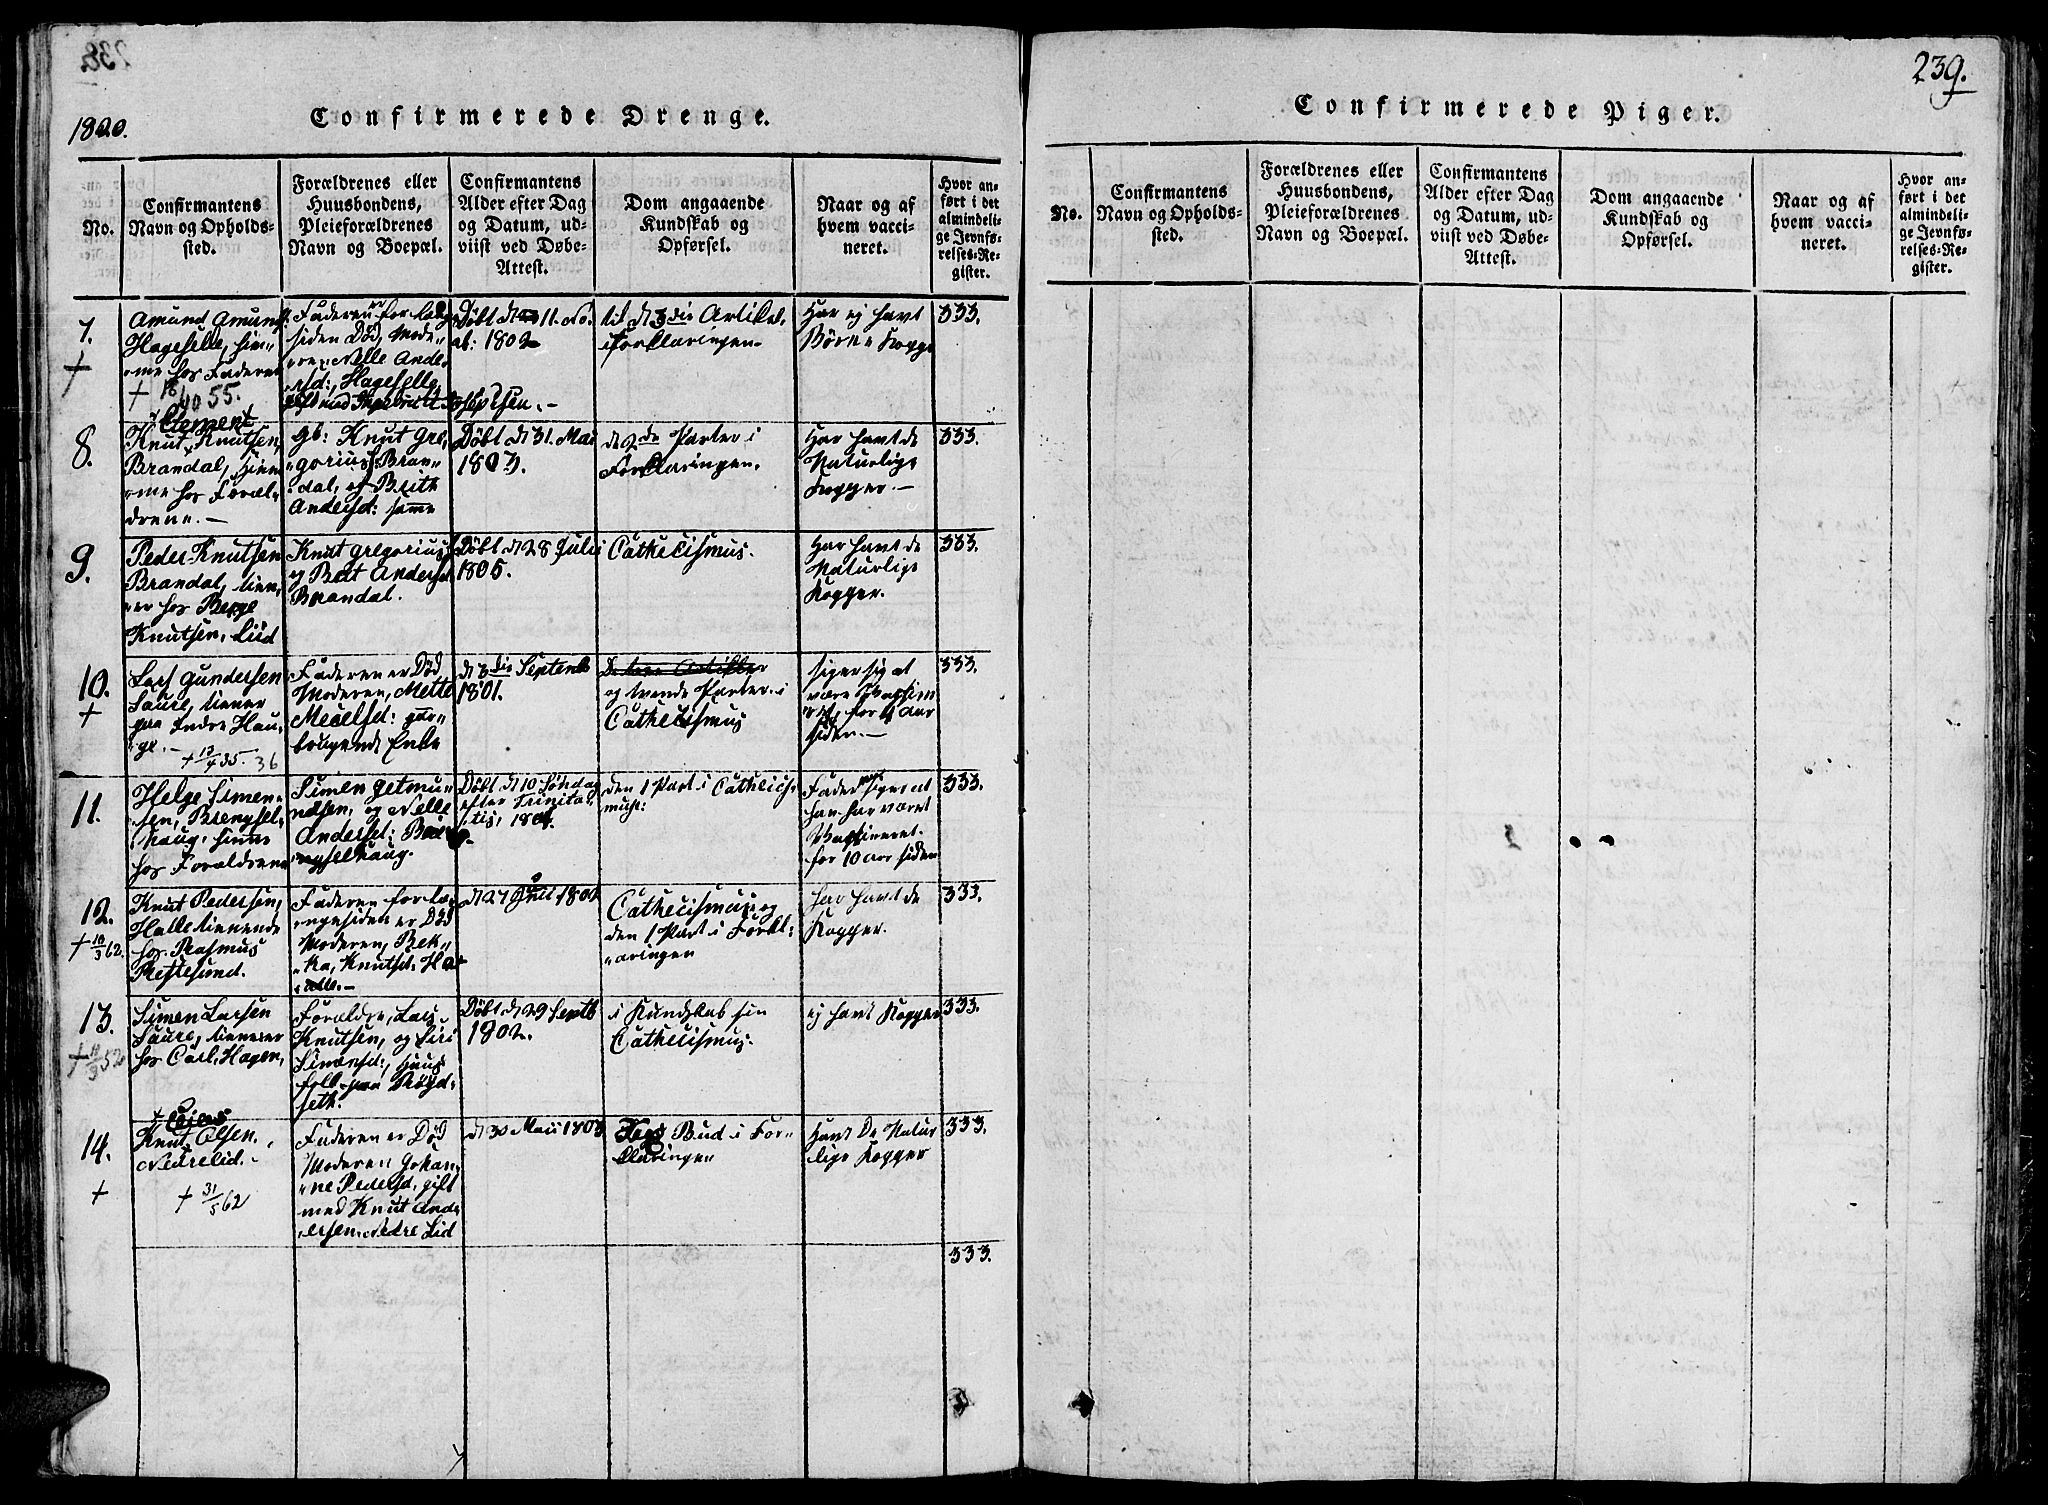 239.
1820.
Confirmerede Drenge.
No.
Confirmantens
Navn og Opholds-
sted.
Forældrenes eller
Huusbondens,
Pleieforældrenes
Navn og Boepæl.
Confirmantens
Alder efter Dag
og Datum, ud-
viist ved Døbe-
Attest.
Dom angaaende
Kundskab og
Opførsel.
Naar og af
hvem vacci-
neret.
Hvor an-
ført i det
almindeli-
ge Jevnfø-
relses-Re-
gister.
7.
Amund Amunds:
Hageselle, hiem-
me hos Faderen
55.
Faderen er for læng
siden Død, Mode-
ren: Nelle Ander
rsd:, Hageselle,
Døbt d 11. No.
1802
til d 3die Artikel.
i Forklaringen
Har ej havt
Børne Kopper
333.
8.
Clement
Knut Knutsen,
Brandal, hiem
me hos Foræl-
drene.-
Gb: Knut Gre-
gorius: Bran-
dal, og Brith
Andersd: samme
Døbt d 31. Mai
1803.
de 2de Parter i
Forklaringen.
Har havt de
Naturlige
Kopper.-
333.
9.
Peder Knutsen
Brandal, tien-
er hos Berge
Knutsen, Liid
Knut Gregorius:
og Brit Andersd
Brandal.
Døbt d 28 Julii
1805.
Cathecismus.
Har havt de
Naturlige
Kopper.
333.
10.
Lars Gundersen
Saure, tiener
paa Indre Hau-
ge.-
+ 35. 36
Faderen er Død
Moderen, Mette
Mecelsd: gaar-
brugende Enke
d 3die Septemb
1801.
og tvende Parter i
Cathecismus
siger sig at
være Vaxsine
ret, for 4 aar
siden.-
333.
11.
Helge Simen-
sen, Brengsel-
haug, hieme
hos Forældrene
Simen Getmun-
ndsen, og Nelle
Andersd: Bre
ngselhaug.
Døbt d 10 Søndag
efter Trinita-
tis, 1804.
den 1 Part i Cathecis-
mus:
Faderen siger at
han har været
Vaxsineret
for 10 aar siden
333.
12.
+ 10/3 62.
Knut Pedersen,
Halle tienende
hos Rasmus
Restesund.
Faderen for læ-
ngesiden er Død
Moderen, Rek-
ka, Knutsd: Ha
alle.-
d 27 Juli 1802
Cathecismus og
den 1 Part i Forkl:
aringen
har havt de
Kopper.
333.
13.
+ 52
Simen Larsen
Saure, tiener
hos Carl, Hagen,
Forældre, Lars
Knutsen, og Siri
Simensd:, Huus
folk paa Røyd-
seth.
Døbt d 29 Septb
1802.
i Kundskab sin
Cathecismus:
ej havt Kopper
333.
14.
+
Knut Olsen.
Nedrelid.
+ 31/5 62
Faderen er Død
Moderen Johan-
ne Pedersd, gift
med Knut And-
ersen Nedre Lid
d 30 Maii 1803
Bud i For-
klaringen
Havt De Natur
lige Kopper
333.
333.
Confirmerede Piger.
No.
Confirmantens
Navn og Opholds-
sted.
Forældrenes eller
Huusbondens,
Pleieforældrenes
Navn og Boepæl.
Confirmantens
Alder efter Dag
og Datum, ud-
viist ved Døbe-
Attest.
Dom angaaende
Kundskab og
Opførsel.
Naar og af
hvem vacci-
neret.
Hvor an-
ført i det
almindeli-
ge Jevnfø-
relses-Re-
gister.